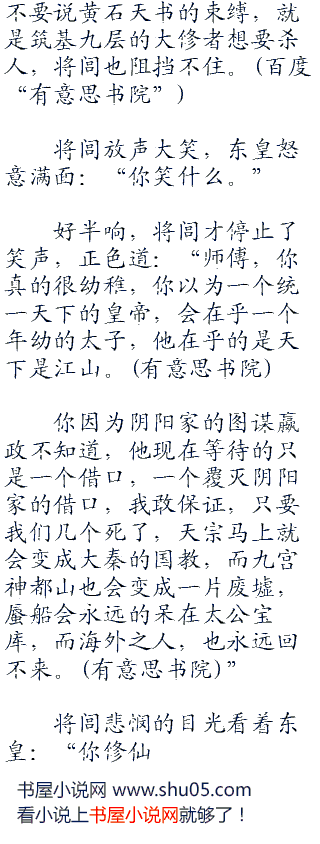 不要说黄石天书的束缚，就
是筑基九层的大修者想要杀
人，将闾也阻挡不住。(百度
“有意思书院”)
将闾放声大笑，东皇怒
意满面：“你笑什么。”
好半响，将闾才停止了
笑声，正色道：“师傅，你
真的很幼稚，你以为一个统
一天下的皇帝，会在乎一个
年幼的太子，他在乎的是天
下是江山。(有意思书院)
你因为阴阳家的图谋嬴
政不知道，他现在等待的只
是一个借口，一个覆灭阴阳
家的借口，我敢保证，只要
我们几个死了，天宗马上就
会变成大秦的国教，而九宫
神都山也会变成一片废墟，
蜃船会永远的呆在太公宝
库，而海外之人，也永远回
不来。(有意思书院)”
将闾悲悯的目光看着东
皇：“你修仙
书屋小说网 www.shu05.com
看小说上书屋小说网就够了！